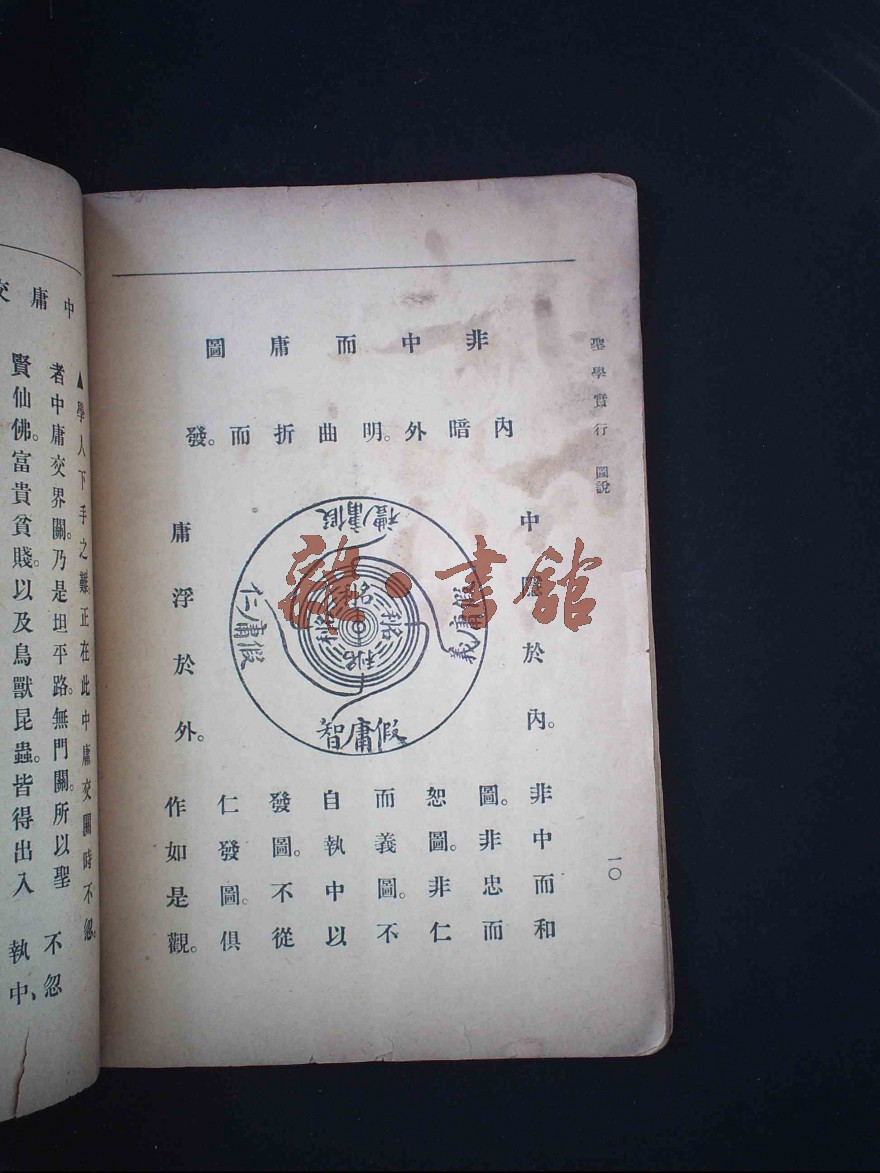 聖學實行 圖說
一〇
非中而庸圖
內暗外明。曲折而發。
假庸禮
假庸義
假庸仁
假庸智
中於內。
庸浮於外。
非中而和
圖。非忠而
恕圖。非仁
而義圖。不
自執中以
發圖。不從
仁發圖。俱
作如是觀。
中庸交
▲學人下手之難。正在此中庸交關時不忽。
者中庸交界關。乃是坦平路。無門關。所以聖 不忍
賢仙佛。富貴貧賤。以及鳥獸昆蟲。皆得出入 執中、
雜·書館